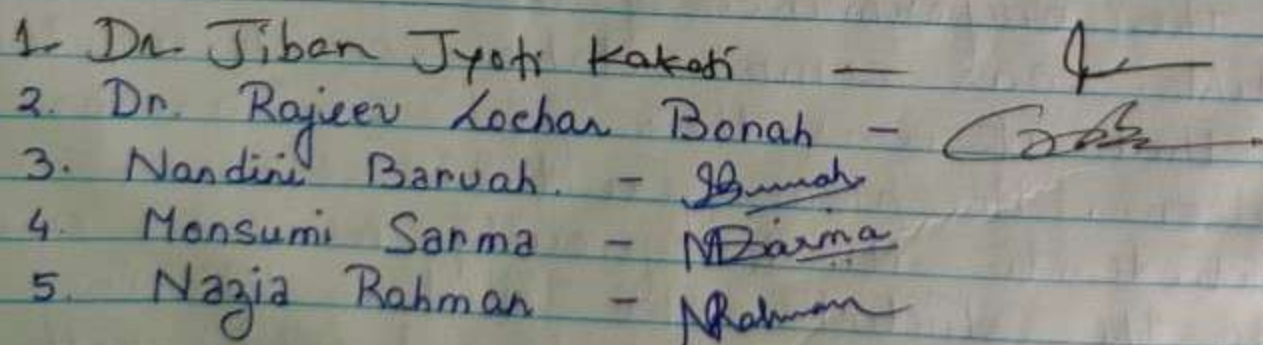 1. Dr. Jiban Jyoti Kakati —
2. Dr. Rajeev Lochan Borah -
3. Nandini Baruah. - Baruah
4. Monsumi Sarma - NSarma
5. Nazia Rahman - NRahman